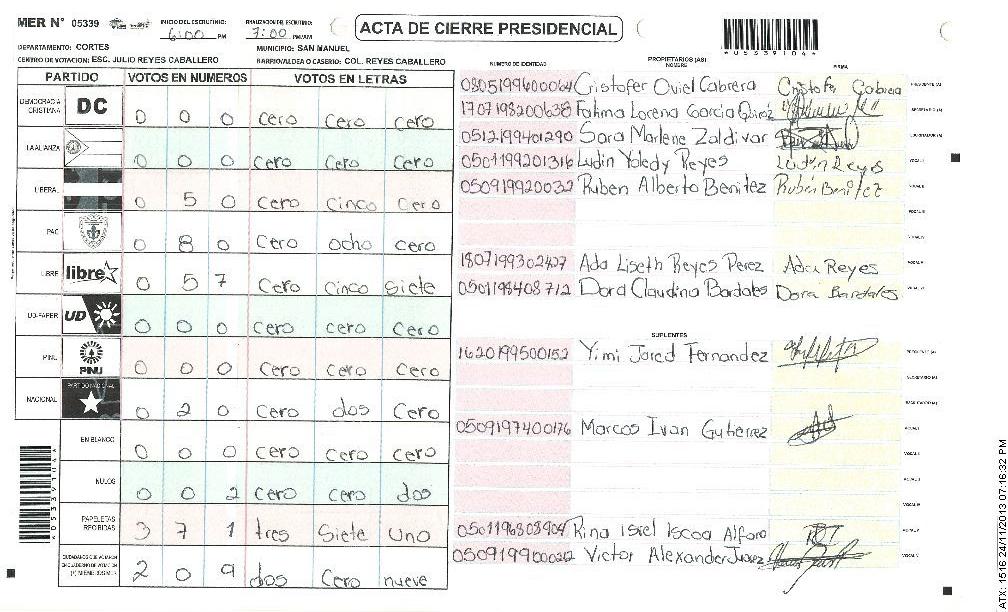 MER N° 05339
INICIO DEL ESCRUTINIO: 6:00 PM
FINALIZACION DEL ESCRUTINIO: 7:00 PM/AM
ACTA DE CIERRE PRESIDENCIAL
*05339104*
DEPARTAMENTO: CORTES
MUNICIPIO: SAN MANUEL
CENTRO DE VOTACION: ESC. JULIO REYES CABALLERO
BARRIO/ALDEA O CASERIO: COL. REYES CABALLERO
PARTIDO VOTOS EN NUMEROS VOTOS EN LETRAS
DEMOCRACIA CRISTIANA DC 0 0 0 cero cero cero
LA ALIANZA 0 0 0 cero cero cero
LIBERAL 0 5 0 cero cinco cero
PAC 0 8 0 cero ocho cero
LIBRE libre 0 5 7 cero cinco siete
UD-FAPER UD 0 0 0 cero cero cero
PINU PINU 0 0 0 cero cero cero
NACIONAL PARTIDO NACIONAL 0 2 0 cero dos cero
EN BLANCO 0 0 0 cero cero cero
NULOS 0 0 2 cero cero dos
PAPELETAS RECIBIDAS 3 7 1 tres siete uno
2 0 9 dos cero nueve
NUMERO DE IDENTIDAD PROPIETARIOS (AS) NOMBRE FIRMA
0805199600064 Cristofer Oviel Cabrera Cristofer Cabrera PRESIDENTE (A)
1707198200638 Fatima Lorena Garcia SECRETARIO (A)
0512199401290 Sara Marlene Zaldivar ESCRUTADOR (A)
0501199201316 Ludin Yoledy Reyes Ludin Reyes VOCAL I
050919920032 Ruben Alberto Benitez Ruben Benitez VOCAL II
VOCAL III
VOCAL IV
1807199302427 Ada Liseth Reyes Perez Ada Reyes VOCAL V
0501198408712 Dora Claudina Bardales Dora Bardales
SUPLENTES
1620199500152 Yimi Jared Fernandez PRESIDENTE (A)
SECRETARIO (A)
ESCRUTADOR (A)
0509197400176 Marcos Ivan Gutierrez VOCAL I
VOCAL II
0501196808904 Rina Isiel Iscoa Alfaro
Victor Alexander Juarez
*05339104*
ATX: 1516 24/11/2013 07:16:32 PM